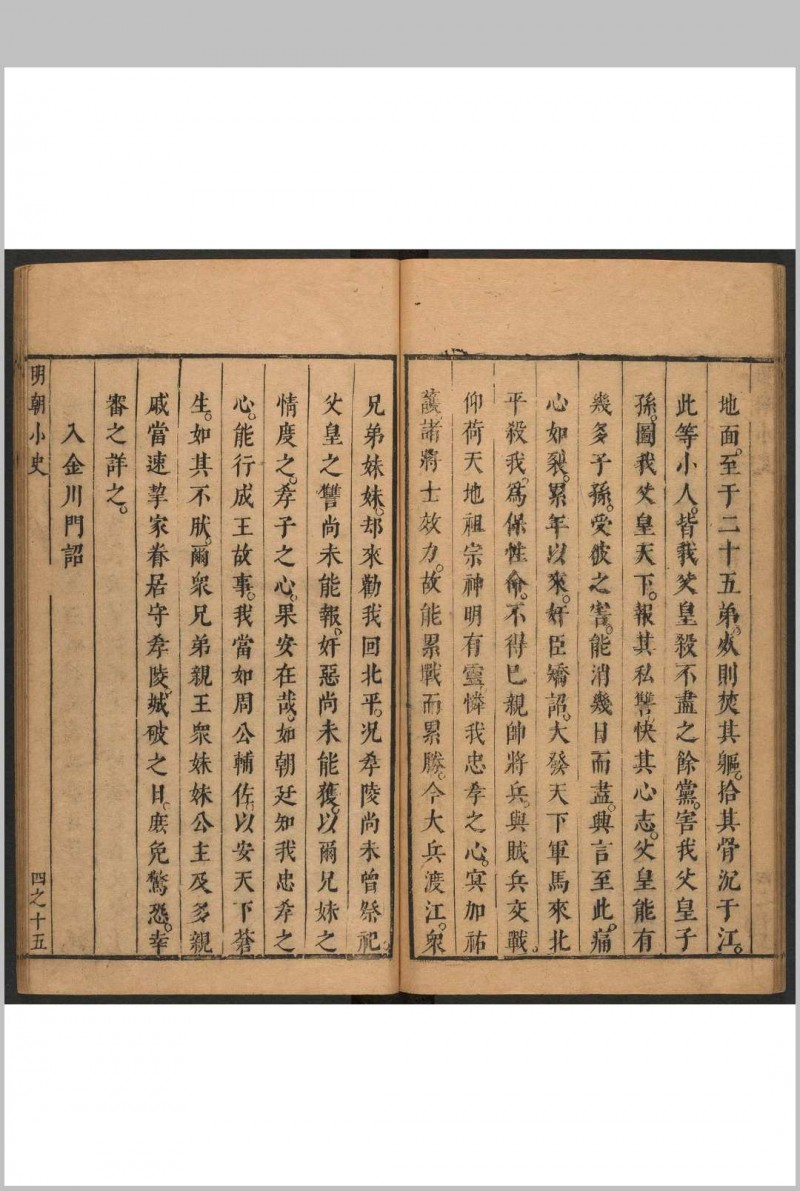 地面。至于二十五弟。死則焚其軀。拾其骨沉于江。
此等小人。皆我父皇殺不盡之餘黨。害我父皇子
孫。圖我父皇天下。報其私讐。快其心志。父皇能有
幾多子孫。受彼之害。能消幾日而盡。興言至此。痛
心如裂。累年以來。奸臣矯詔。大發天下軍馬來北
平殺我。爲保性命。不得已親帥將兵。與賊兵交戰。
仰荷天地祖宗神明有靈。憐我忠孝之心。冥加祐
護。諸將士效力。故能累戰而累勝。今大兵渡江。衆
兄弟妹妹。却來勸我回北平。况孝陵尚未曾祭祀。
父皇之讐尚未能報。奸惡尚未能獲。以爾兄妹之
情度之。孝子之心。果安在哉。如朝廷知我忠孝之
心。能行成王故事。我當如周公輔佐。以安天下蒼
生。如其不肰。爾衆兄弟親王衆妹妹公主及多親
戚當速挈家眷居守孝陵。城破之日。庶免驚恐。幸
審之詳之。
入金川門詔
明朝小史
四之十五